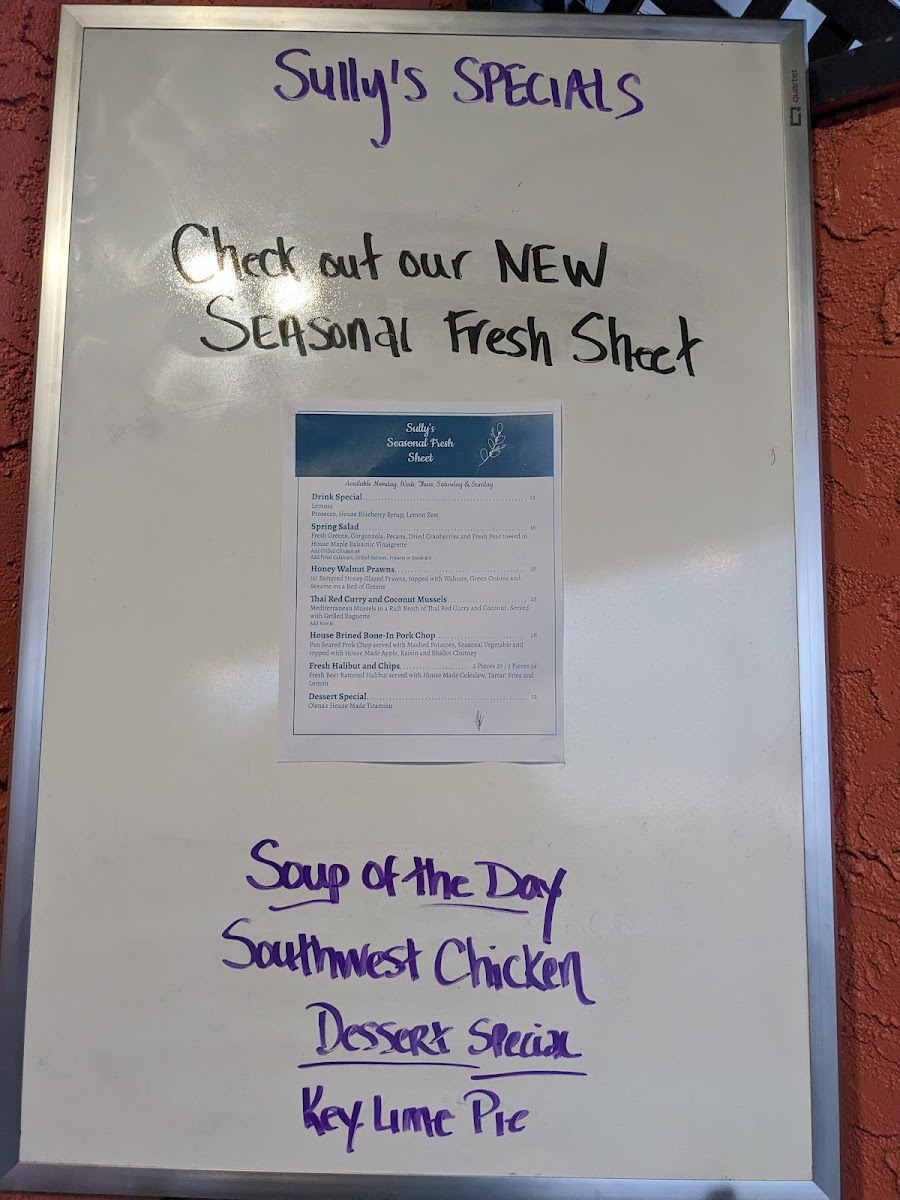 Sully's SPECIALS
quartet
Check out our NEW
SEASONAL Fresh Sheet
Sully's
Seasonal Fresh
Sheet
Available Monday, Weds, Thurs, Saturday & Sunday
Drink Special 12
Lemora
Prosecco, House Blueberry Syrup, Lemon Zest
Spring Salad 16
Fresh Greens, Gorgonzola, Pecans, Dried Cranberries and Fresh Pear tossed in
House Maple Balsamic Vinaigrette
Add Grilled Chicken $8
Add Fried Calamari, Grilled Salmon, Prawns or Steak $10
Honey Walnut Prawns 18
(6) Battered Honey Glazed Prawns, topped with Walnuts, Green Onions and
Sesame on a Bed of Greens
Thai Red Curry and Coconut Mussels 23
Mediterranean Mussels in a Rich Broth of Thai Red Curry and Coconut. Served
with Grilled Baguette
Add Rice $1
House Brined Bone-In Pork Chop 28
Pan Seared Pork Chop served with Mashed Potatoes, Seasonal Vegetable and
topped with House Made Apple, Raisin and Shallot Chutney
Fresh Halibut and Chips 2 Pieces 27 / 3 Pieces 34
Fresh Beer Battered Halibut served with House Made Coleslaw, Tartar, Fries and
Lemon
Dessert Special 12
Olena's House Made Tiramisu
Soup of the Day
Southwest Chicken
Dessert Special
Key Lime Pie